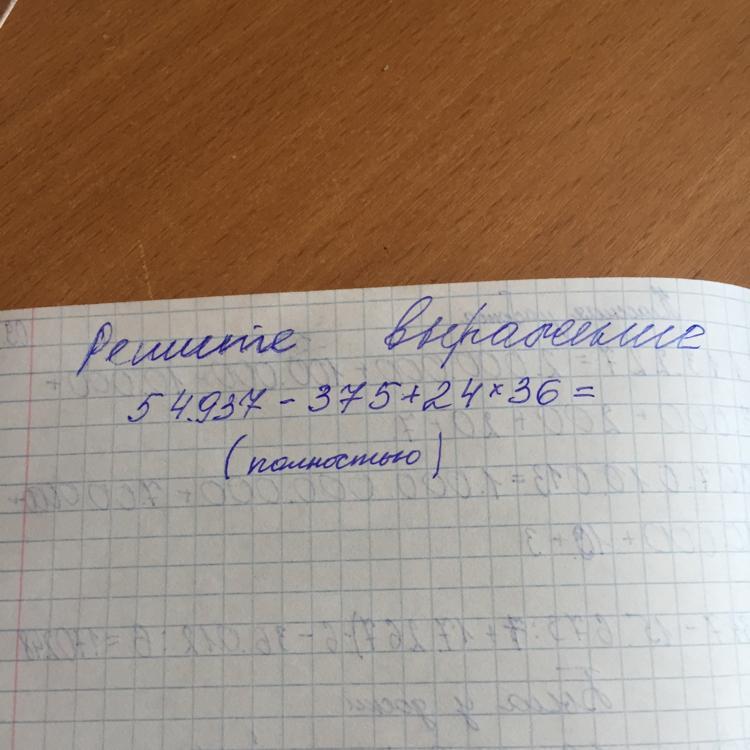 Решите выражение
54.937 - 375 + 24 × 36 =
(полностью)